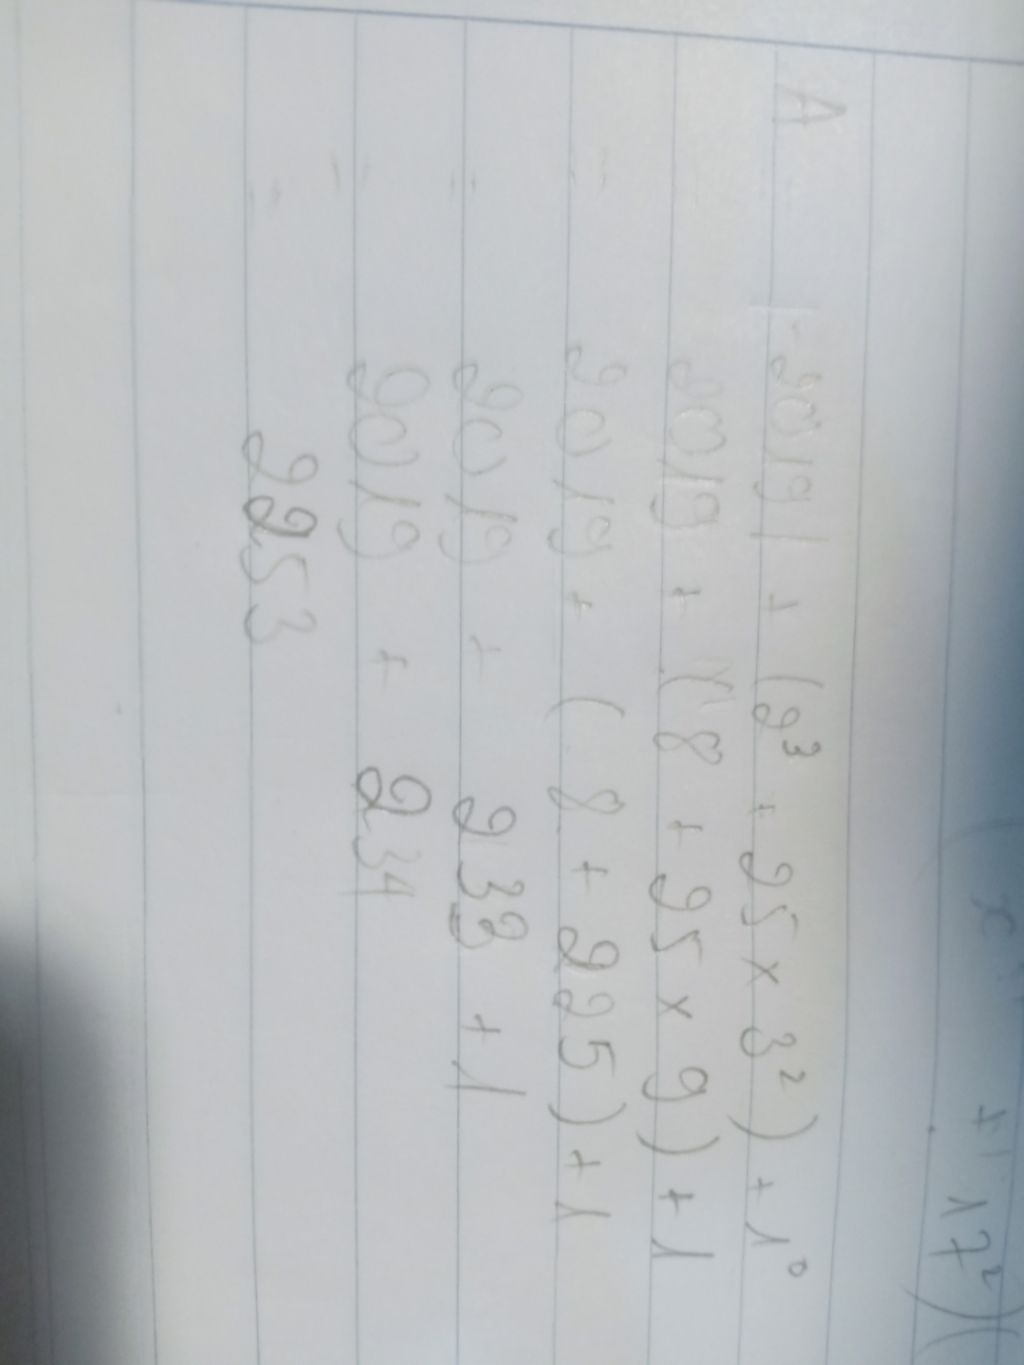 x + 17²)(
A |-2019| + (2³ + 25 × 3²) + 1⁰
= 2019 + (8 + 25 × 9) + 1
= 2019 + (8 + 225) + 1
= 2019 + 233 + 1
= 2019 + 234
= 2253